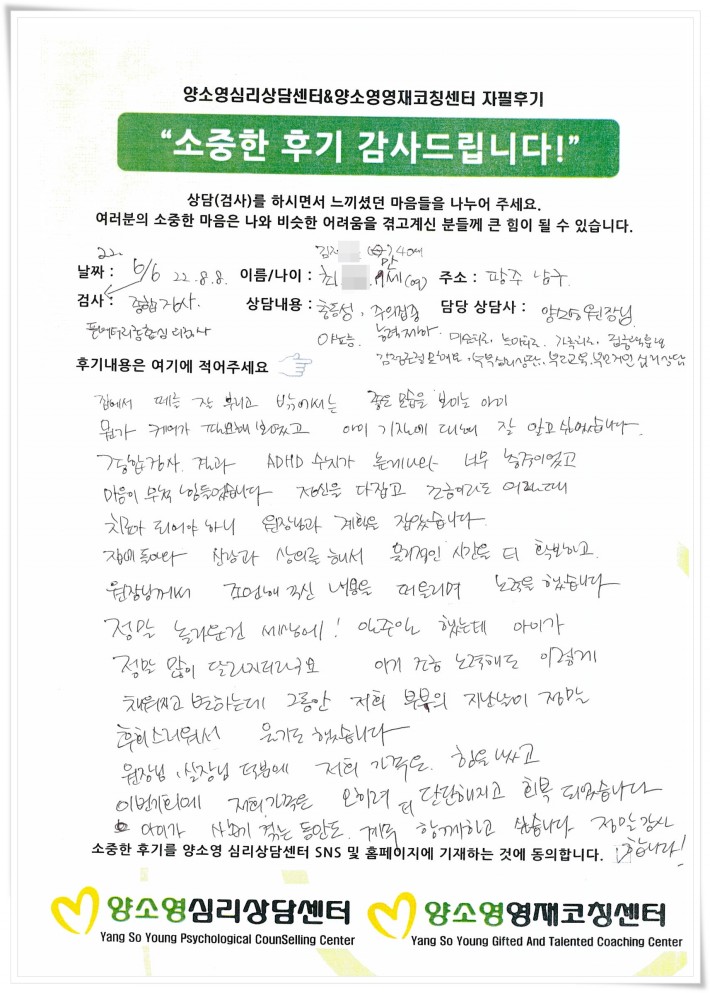 양소영심리상담센터&양소영영재코칭센터 자필후기
“소중한 후기 감사드립니다!”
상담(검사)를 하시면서 느끼셨던 마음들을 나누어 주세요.
여러분의 소중한 마음은 나와 비슷한 어려움을 겪고계신 분들께 큰 힘이 될 수 있습니다.
22. 40세
날짜 : 6/6 22.8.8. 이름/나이 : 최 주소 : 광주 남구
검사 : 종합검사. 상담내용 : 충동성, 주의집중 담당 상담사 : 양소영 원장님
후기내용은 여기에 적어주세요
집에서 떼를 잘 부리고 밖에서는 좋은 모습을 보이는 아이
뭔가 케어가 필요해 보였고 아이 기질에 대해 잘 알고 싶었습니다.
종합검사 결과 ADHD 수치가 높게나와 너무 충격이었고
마음이 무척 힘들었습니다 정신을 다잡고 조금이라도 어릴때
치료가 되어야 하니 원장님과 계획을 잡았습니다.
집에 돌아와 신랑과 상의를 해서 물리적인 시간을 더 확보하고
원장님께서 조언해 주신 내용을 떠올리며 노력을 했습니다
정말 놀라운건 세상에! 일주일 했는데 아이가
정말 많이 달라지더라구요 아기 조금 노력해도 이렇게
채워지고 변하는데 그동안 저희 부부의 지난날이 정말
후회스러워서 울기도 했습니다
원장님, 실장님 덕분에 저희 가족은 힘을 냈고
이번기회에 저희가족은 오히려 더 단단해지고 회복 되었습니다
아이가 사춘기 겪는 동안도 계속 함께하고 싶습니다 정말 감사
소중한 후기를 양소영 심리상담센터 SNS 및 홈페이지에 기재하는 것에 동의합니다. 합니다!
양소영심리상담센터 양소영영재코칭센터
Yang So Young Psychological CounSelling Center Yang So Young Gifted And Talented Coaching Center